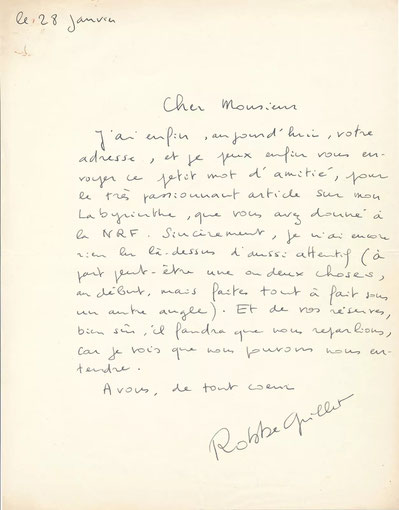 le 28 janvier
Cher Monsieur
J'ai enfin, aujourd'hui, votre
adresse, et je peux enfin vous en-
voyer ce petit mot d'amitié, pour
le très passionnant article sur mon
Labyrinthe, que vous avez donné à
la NRF. Sincèrement, je n'ai encore
rien lu là-dessus d'aussi attentif (à
part peut-être une ou deux choses,
au début, mais faites tout à fait sous
un autre angle). Et de vos réserves,
bien sûr, il faudra que nous reparlions,
car je vois que nous pouvons nous en-
tendre.
A vous, de tout coeur
Robbe-Grillet